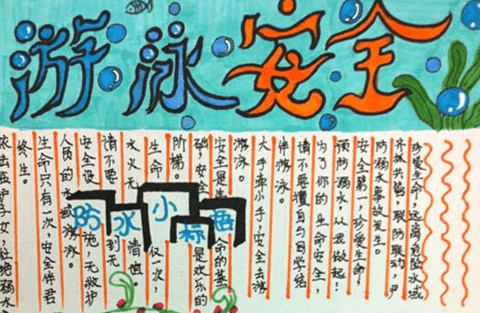 游泳安全
防水小标语
珍爱生命,远离危险水域
齐抓共管,联防联动,严
防溺水事故发生。
安全第一,珍爱生命!
预防溺水,从我做起!
为了你的生命安全,
请不要擅自与同学结
伴游泳。
大手牵小手,安全去游
游泳。
安全是生命的基
础,安全是欢乐的
阶梯。
生命仅一次,
水火无情
请不要到无
安全设施,无救护
人员的水域游泳。
生命只有一次,安全伴君
终生。
依法监护子女,杜绝溺水